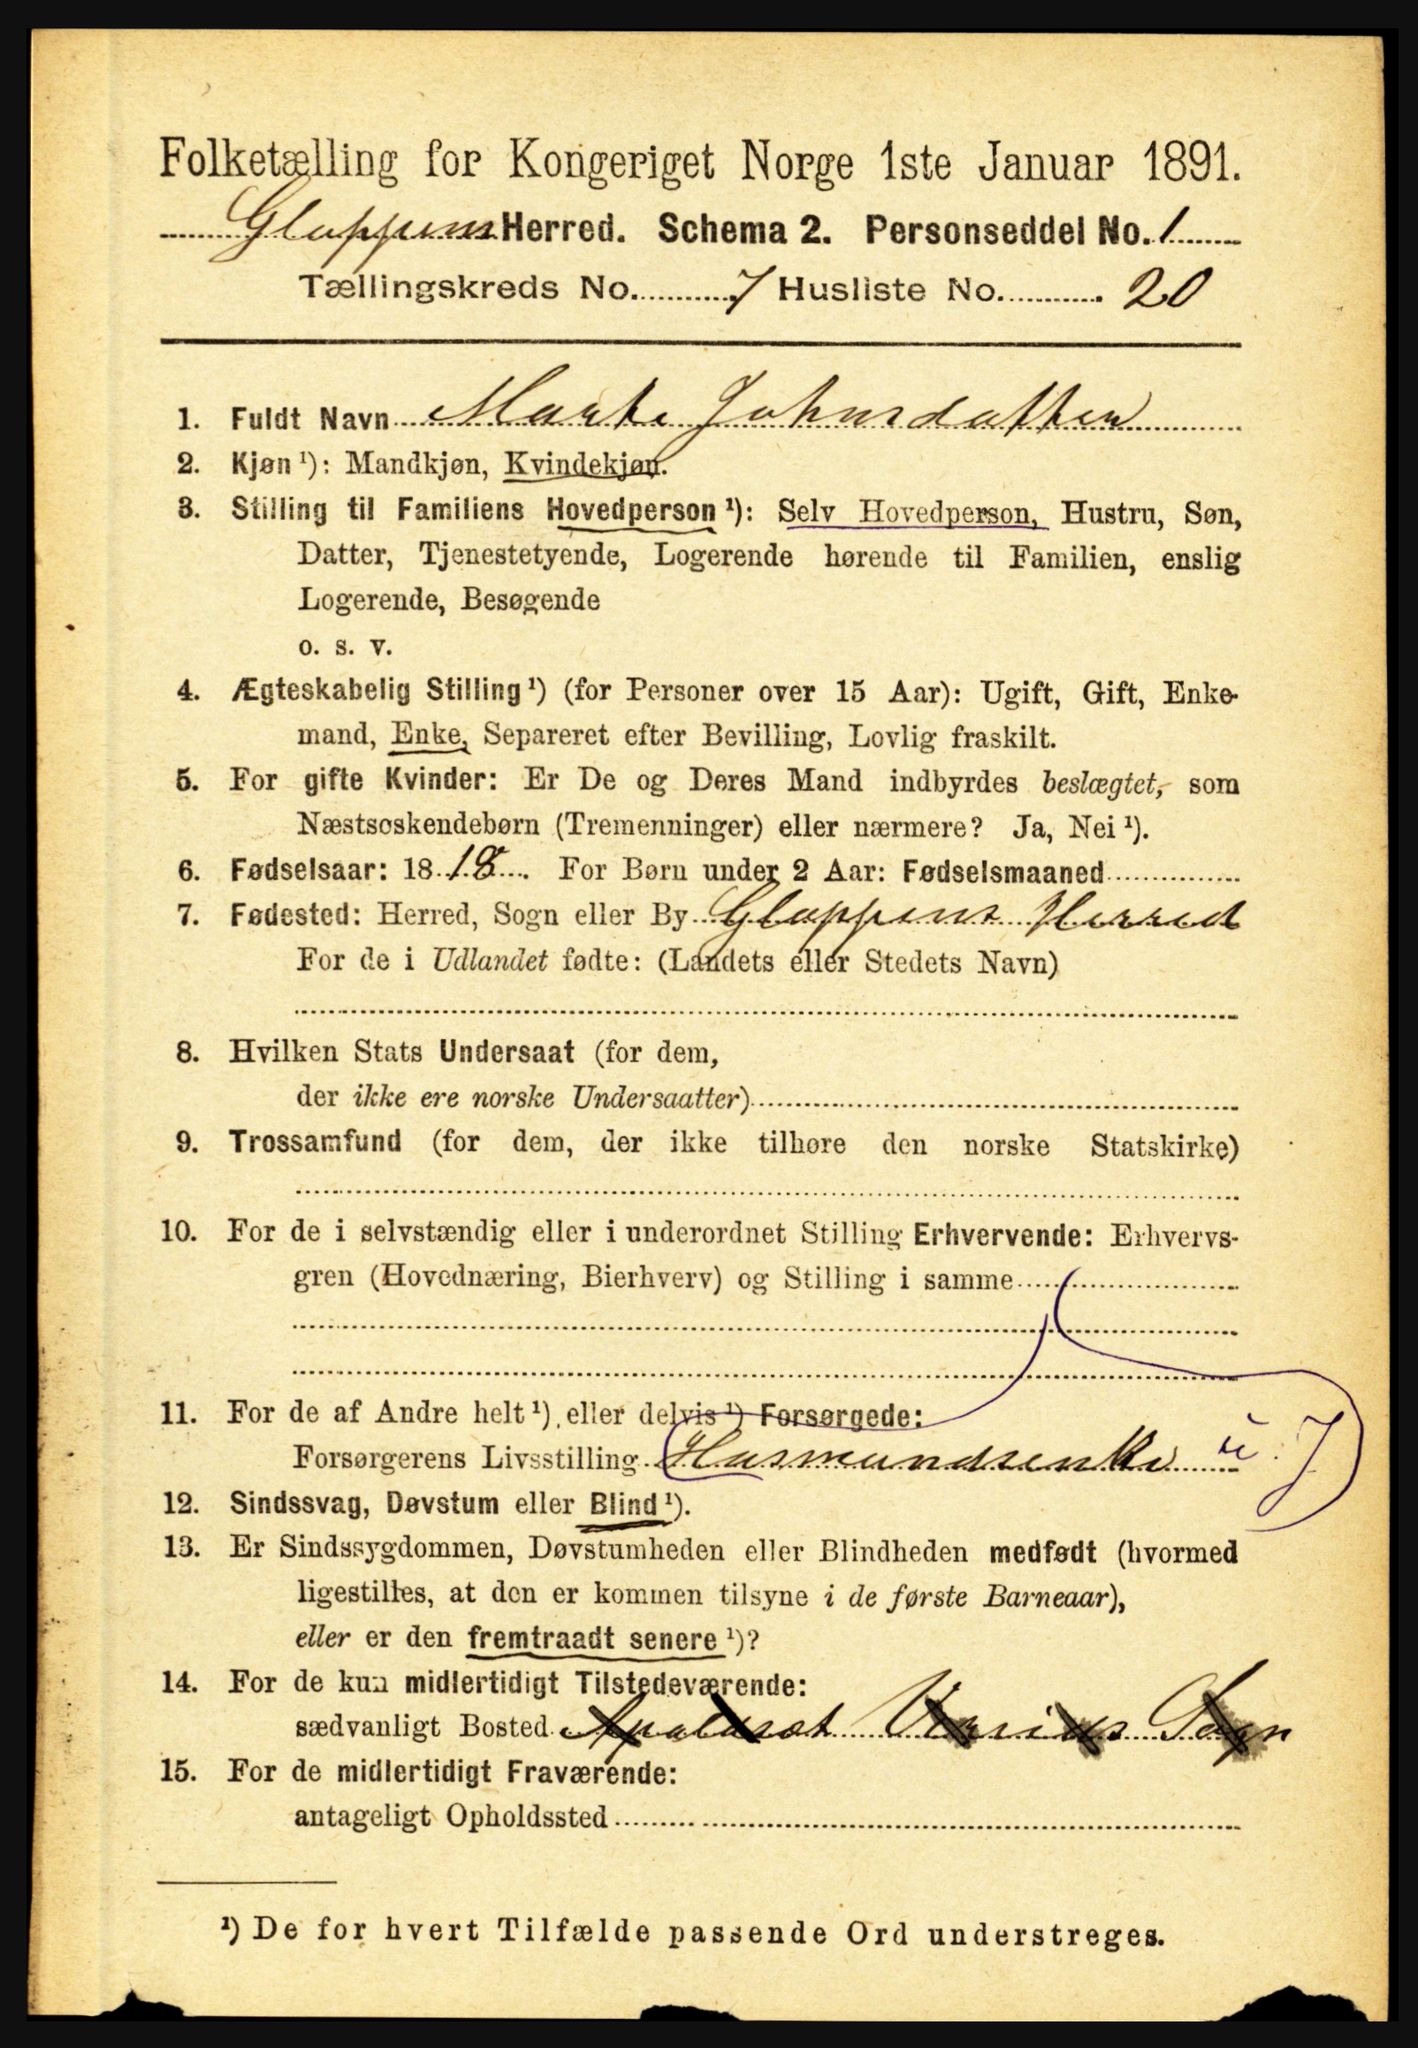 Folketælling for Kongeriget Norge 1ste Januar 1891.
Gloppens Herred. Schema 2. Personseddel No. 1
Tællingskreds No. 7 Husliste No. 20
1. Fuldt Navn Marte Johnsdatter
2. Kjøn ¹): Mandkjøn, Kvindekjøn.
3. Stilling til Familiens Hovedperson ¹): Selv Hovedperson, Hustru, Søn,
Datter, Tjenestetyende, Logerende hørende til Familien, enslig
Logerende, Besøgende
o. s. v.
4. Ægteskabelig Stilling ¹) (for Personer over 15 Aar): Ugift, Gift, Enke-
mand, Enke, Separeret efter Bevilling, Lovlig fraskilt.
5. For gifte Kvinder: Er De og Deres Mand indbyrdes beslægtet, som
Næstsøskendebørn (Tremenninger) eller nærmere? Ja, Nei ¹).
6. Fødselsaar: 1818. For Børn under 2 Aar: Fødselsmaaned
7. Fødested: Herred, Sogn eller By Gloppens Herred
For de i Udlandet fødte: (Landets eller Stedets Navn)
8. Hvilken Stats Undersaat (for dem,
der ikke ere norske Undersaatter)
9. Trossamfund (for dem, der ikke tilhøre den norske Statskirke)
10. For de i selvstændig eller i underordnet Stilling Erhvervende: Erhvervs-
gren (Hovednæring, Bierhverv) og Stilling i samme
11. For de af Andre helt ¹), eller delvis ¹) Forsørgede:
Forsørgerens Livsstilling Husmandsenke u. J
12. Sindssvag, Døvstum eller Blind ¹).
13. Er Sindssygdommen, Døvstumheden eller Blindheden medfødt (hvormed
ligestilles, at den er kommen tilsyne i de første Barneaar),
eller er den fremtraadt senere ¹)?
14. For de kun midlertidigt Tilstedeværende:
sædvanligt Bosted Sogn
15. For de midlertidigt Fraværende:
antageligt Opholdssted
¹) De for hvert Tilfælde passende Ord understreges.